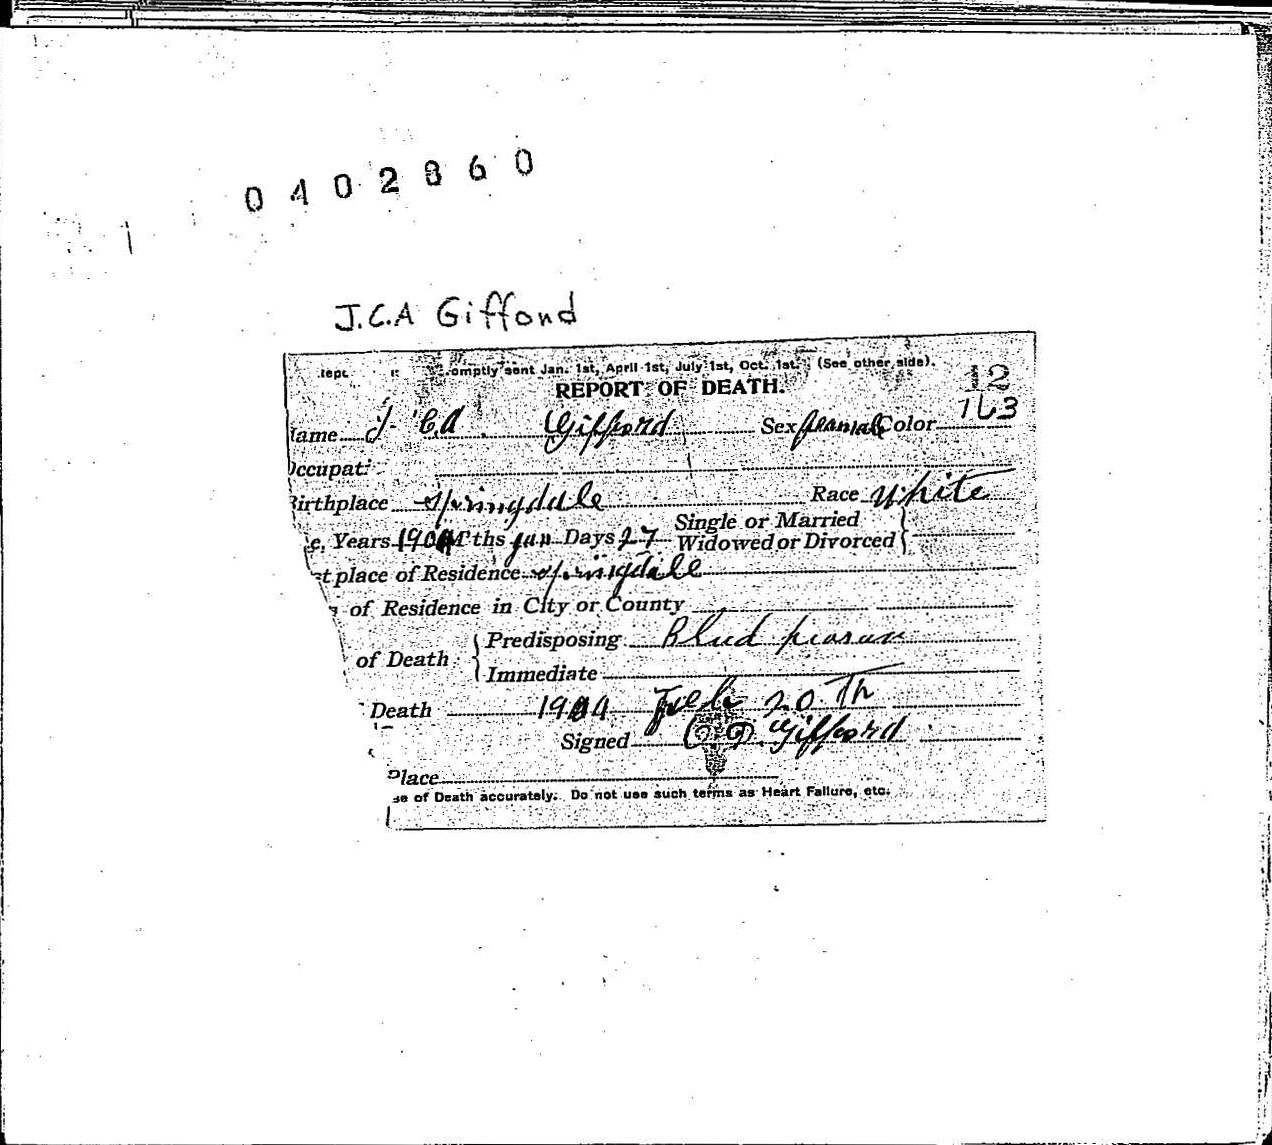 0402860
J.C.A Gifford
omptly sent Jan. 1st, April 1st, July 1st, Oct. 1st. (See other side).
REPORT OF DEATH.
12
163
ame J. C.A. Gifford Sex femal Color
Occupat
Birthplace Springdale Race White
e, Years 1904 ths Jan Days 27 Single or Married
Widowed or Divorced
st place of Residence Springdale
of Residence in City or County
of Death Predisposing Blud
Immediate
Death 1904 Feb 20 Th
Signed Gifford
Place
se of Death accurately. Do not use such terms as Heart Failure, etc.